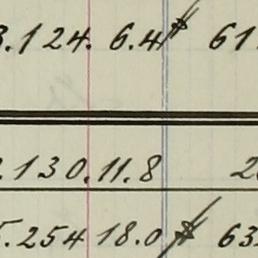 3.124. 6.4 $ 61
.130.11.8 2
5.254 18.0 $ 63